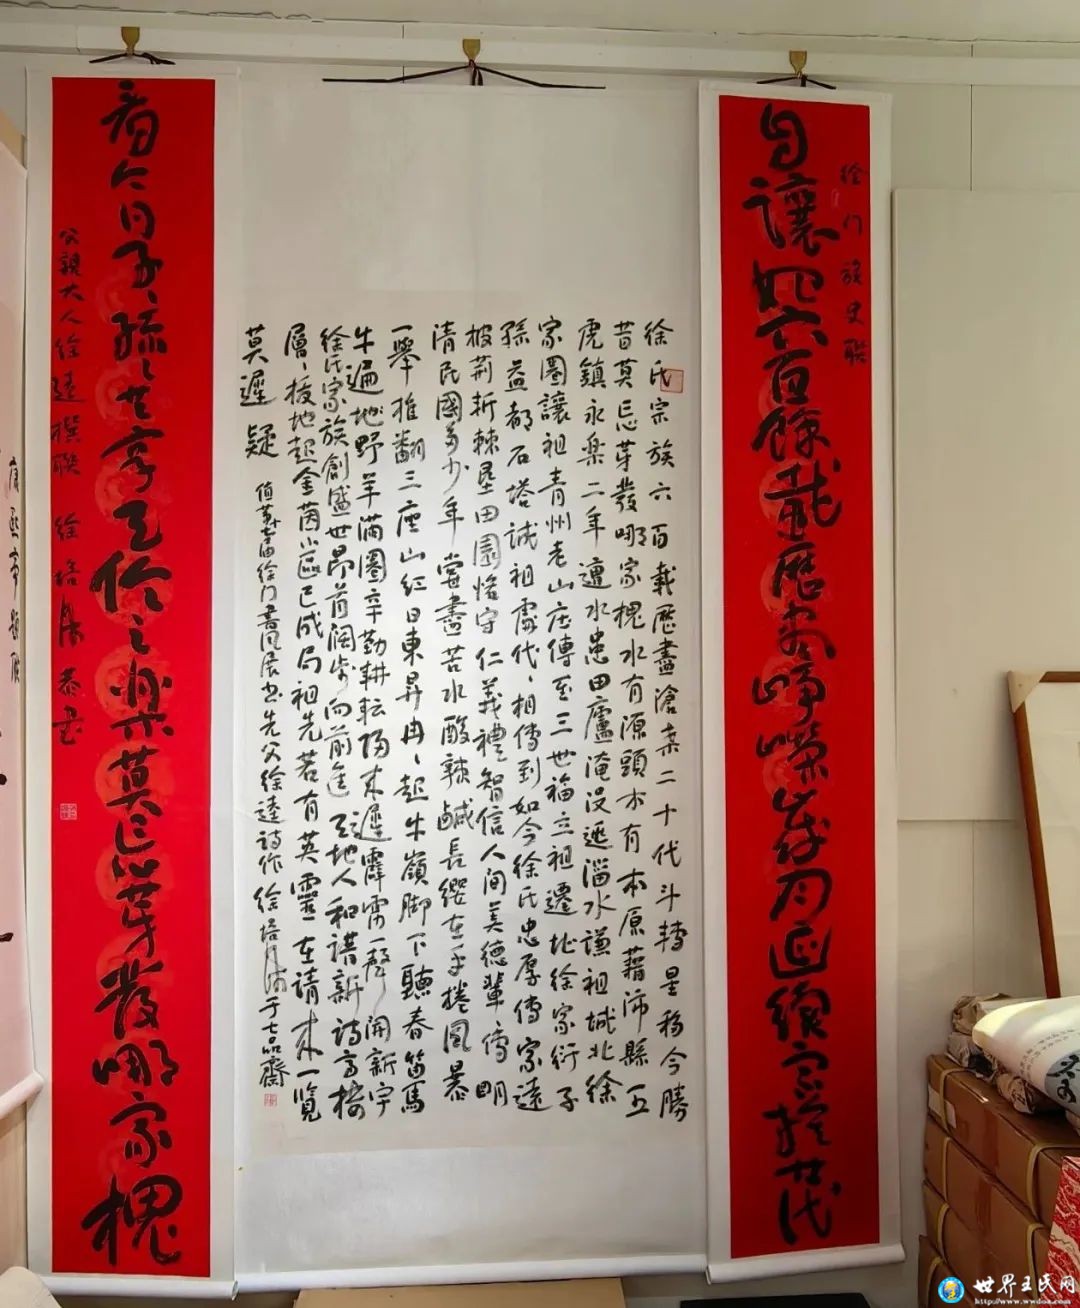 徐門族史聯
徐氏宗族六百載歷盡滄桑二十代斗轉星移今勝
昔莫忘芽發哪家槐水有源頭木有本原藉沛縣五
虎鎮永樂二年遭水患田廬淹没遷淄水謙祖城北徐
家圈讓祖青州老山庄傳至三世福立祖遷北徐家衍子
孫益都石塔誠祖處代、相傳到如今徐氏忠厚傳家遠
披荆斬棘垦田園恪守仁義禮智信人间美德輩傳明
清民國多少年嘗盡苦水酸辣鹹長纓在手捲風暴
一舉推翻三座山紅日東昇冉、起牛嶺脚下聽春笛馬
牛遍地野羊滿圈辛勤耕耘陽未遲霹靂一聲開新宇
徐氏家族創盛世昂首闊步向前進天地人和譜新詩高樓
層、接地起金茵小區已成局祖先若有英靈在請來一覽
莫遲疑
徐门書风展书先父徐逵詩作徐培 于七品齋
看今日子孫、共享天倫之樂莫忘芽發哪家槐
大人徐逵撰联 徐培 恭書
康熙帝題聯
世界王氏网